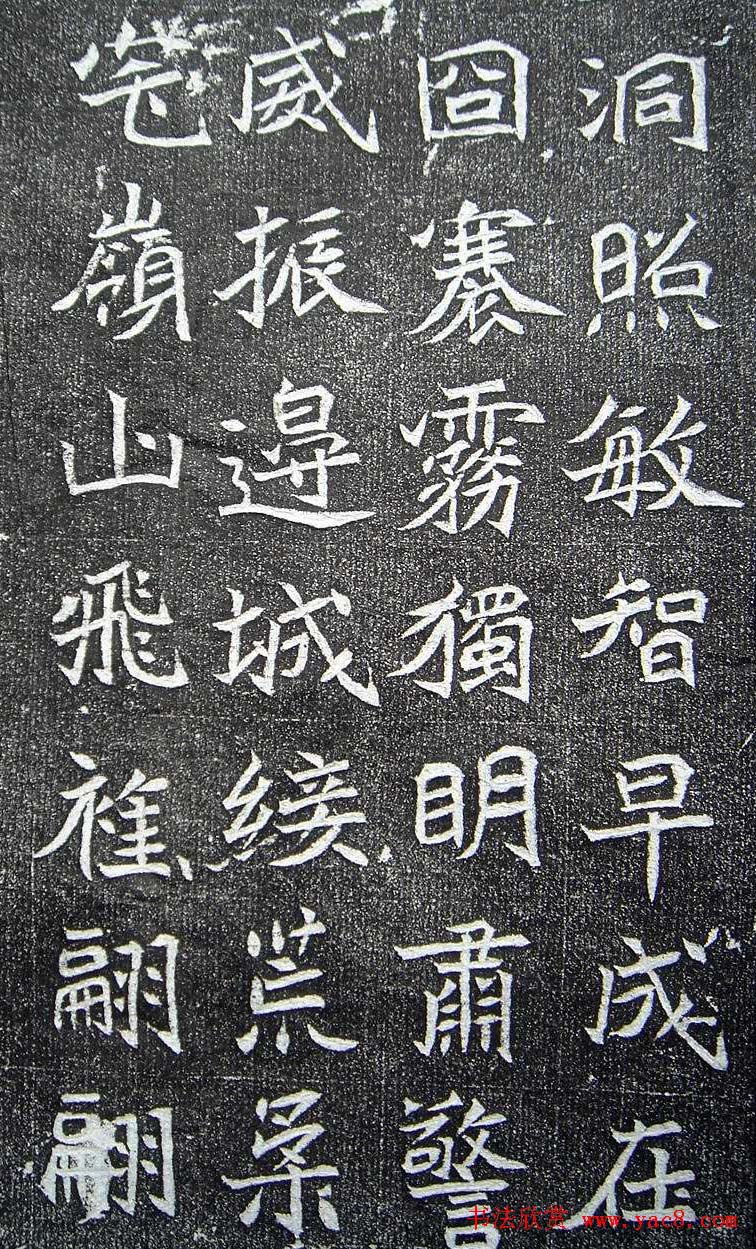 洞照敏智早成在
冏褰霧獨明肅警
威振邊城綏荒
嶺山飛翩翩
书法欣赏 www.yac8.com